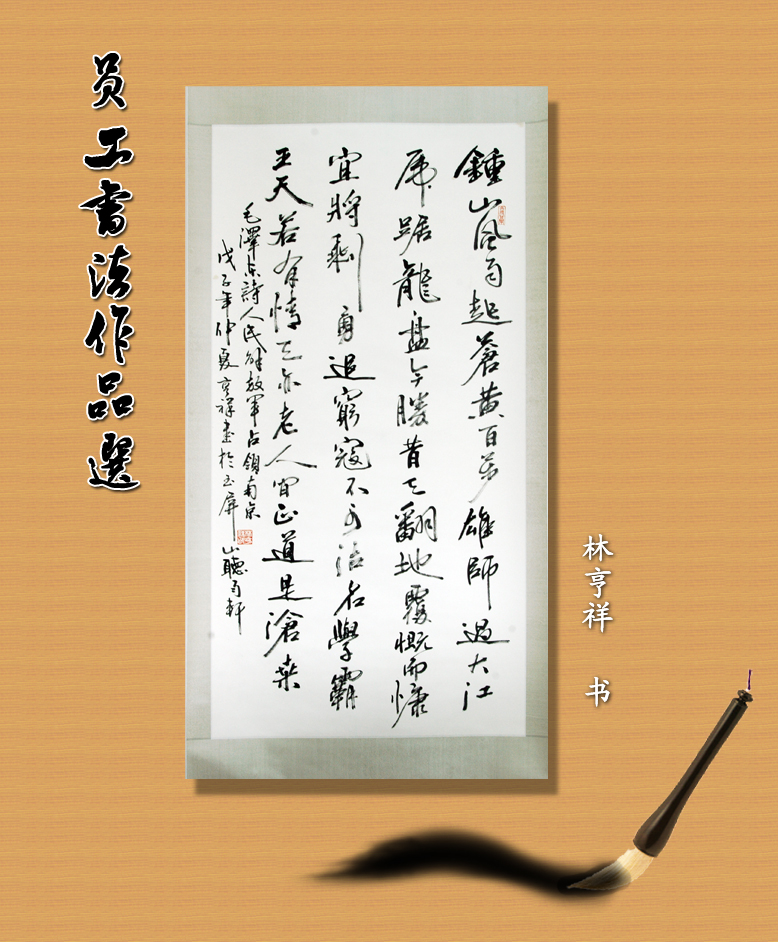 员工書法作品選
鍾山風雨起蒼黄百萬雄師過大江
虎踞龍盤今勝昔天翻地覆慨而慷
宜將剩勇追窮寇不可沽名學霸
王天若有情天亦老人間正道是滄桑
毛澤东詩人民解放軍占領南京
戊子年仲夏亨祥書於玉屏山聽雨軒
林亨祥 书